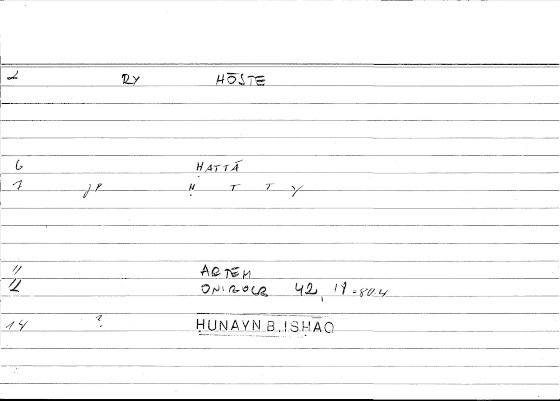 2 RY HŌSTE
6 ḤATTĀ
1 JP Ḥ T T Y
11 ARTEM
12 ONIROCR 42, 17 = 80.4
14 ? ḤUNAYN B. ISḤAQ